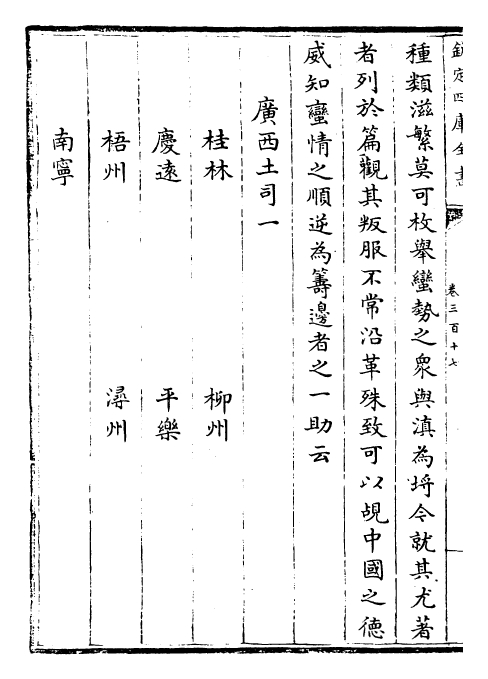 欽定四庫全書
卷三百十七
種類滋繁莫可枚舉蠻勢之衆與滇為埒今就其尤著
者列於篇觀其叛服不常沿革殊致可以覘中國之德
威知蠻情之順逆為籌邊者之一助云
廣西土司一
桂林　柳州
慶遠　平樂
梧州　潯州
南寧